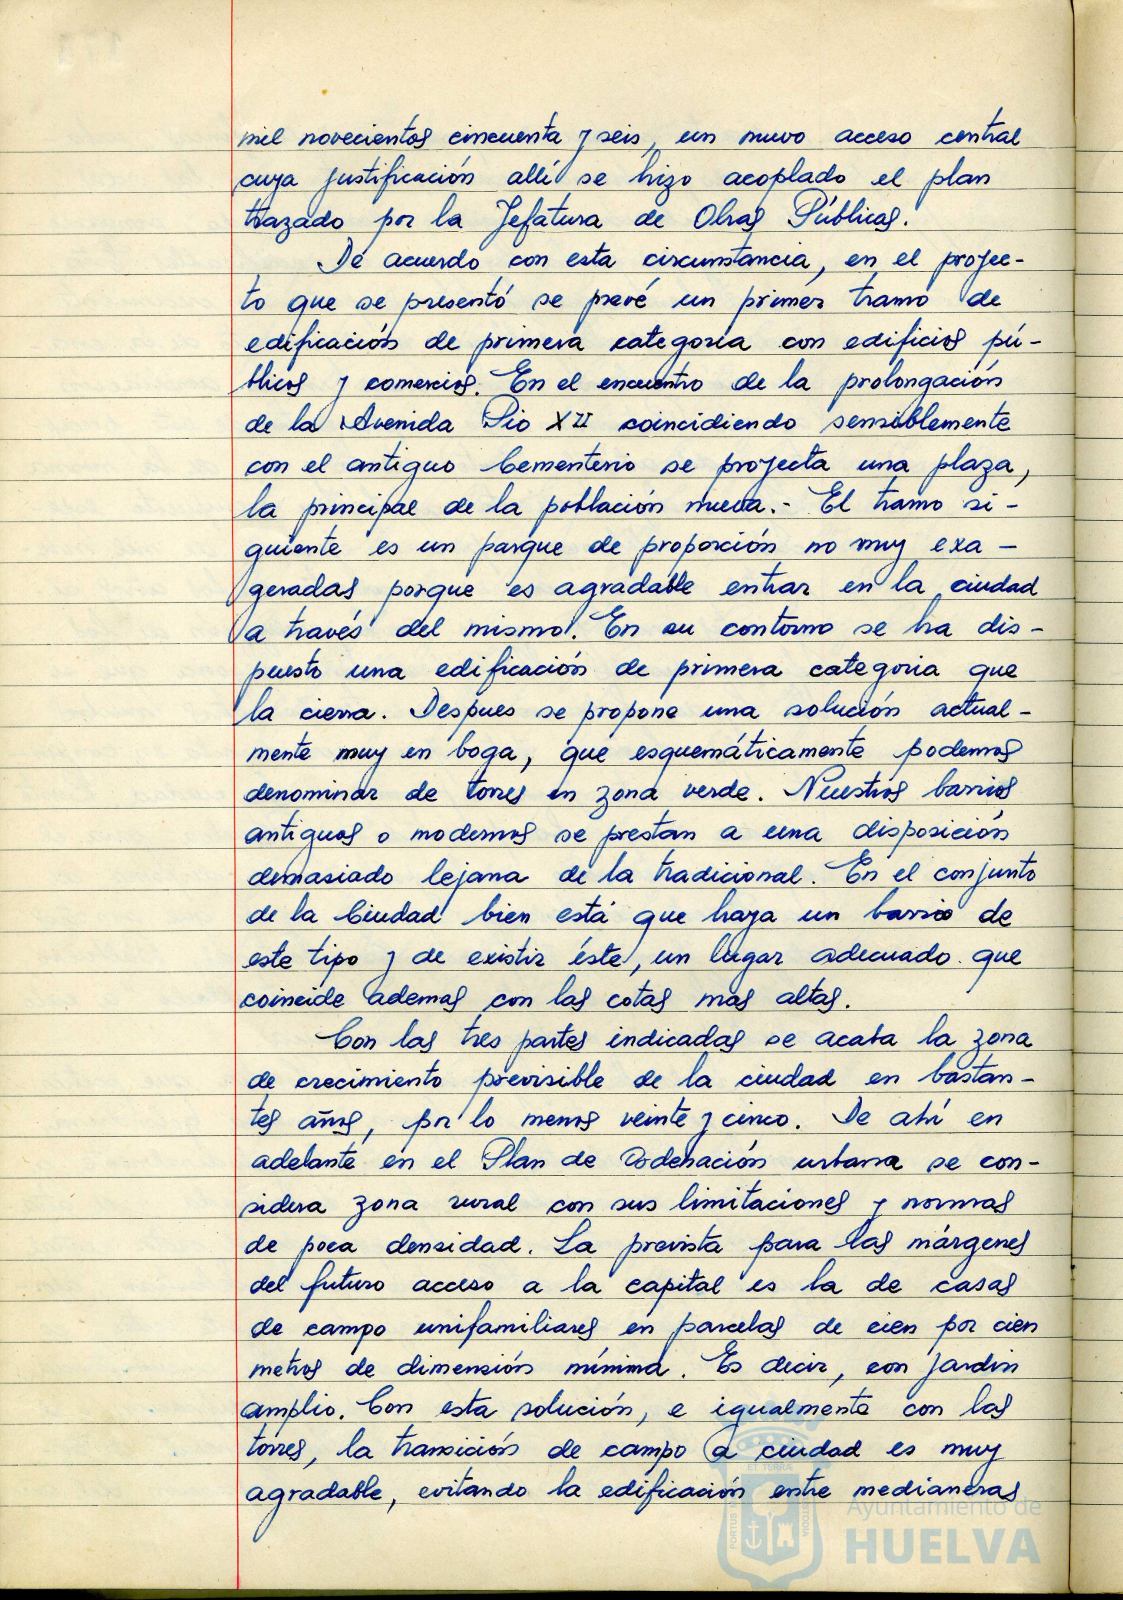 mil novecientos cincuenta y seis, un nuevo acceso central
cuya justificación allí se hizo acoplado el plan
trazado por la Jefatura de Obras Públicas.
De acuerdo con esta circunstancia, en el proyec-
to que se presentó se prevé un primer tramo de
edificación de primera categoría con edificios pú-
blicos y comercios. En el encuentro de la prolongación
de la Avenida Pio XII coincidiendo sensiblemente
con el antiguo Cementerio se proyecta una plaza,
la principal de la población nueva.- El tramo si-
guiente es un parque de proporción no muy exa-
geradas porque es agradable entrar en la ciudad
a través del mismo. En su contorno se ha dis-
puesto una edificación de primera categoria que
la cierra. Despues se propone una solución actual-
mente muy en boga, que esquemáticamente podemos
denominar de torres en zona verde. Nuestros barrios
antiguos o modernos se prestan a una disposición
demasiado lejana de la tradicional. En el conjunto
de la Ciudad bien está que haya un barrio de
este tipo y de existir éste, un lugar adecuado que
coincide ademas con las cotas mas altas.
Con las tres partes indicadas se acaba la zona
de crecimiento previsible de la ciudad en bastan-
tes años, por lo menos veinte y cinco. De ahí en
adelante en el Plan de Ordenación urbana se con-
sidera zona rural con sus limitaciones y normas
de poca densidad. La prevista para las márgenes
del futuro acceso a la capital es la de casas
de campo unifamiliares en parcelas de cien por cien
metros de dimensión mínima. Es decir, con jardin
amplio. Con esta solución, e igualmente con las
torres, la transición de campo a ciudad es muy
agradable, evitando la edificación entre medianeras
Ayuntamiento de
HUELVA